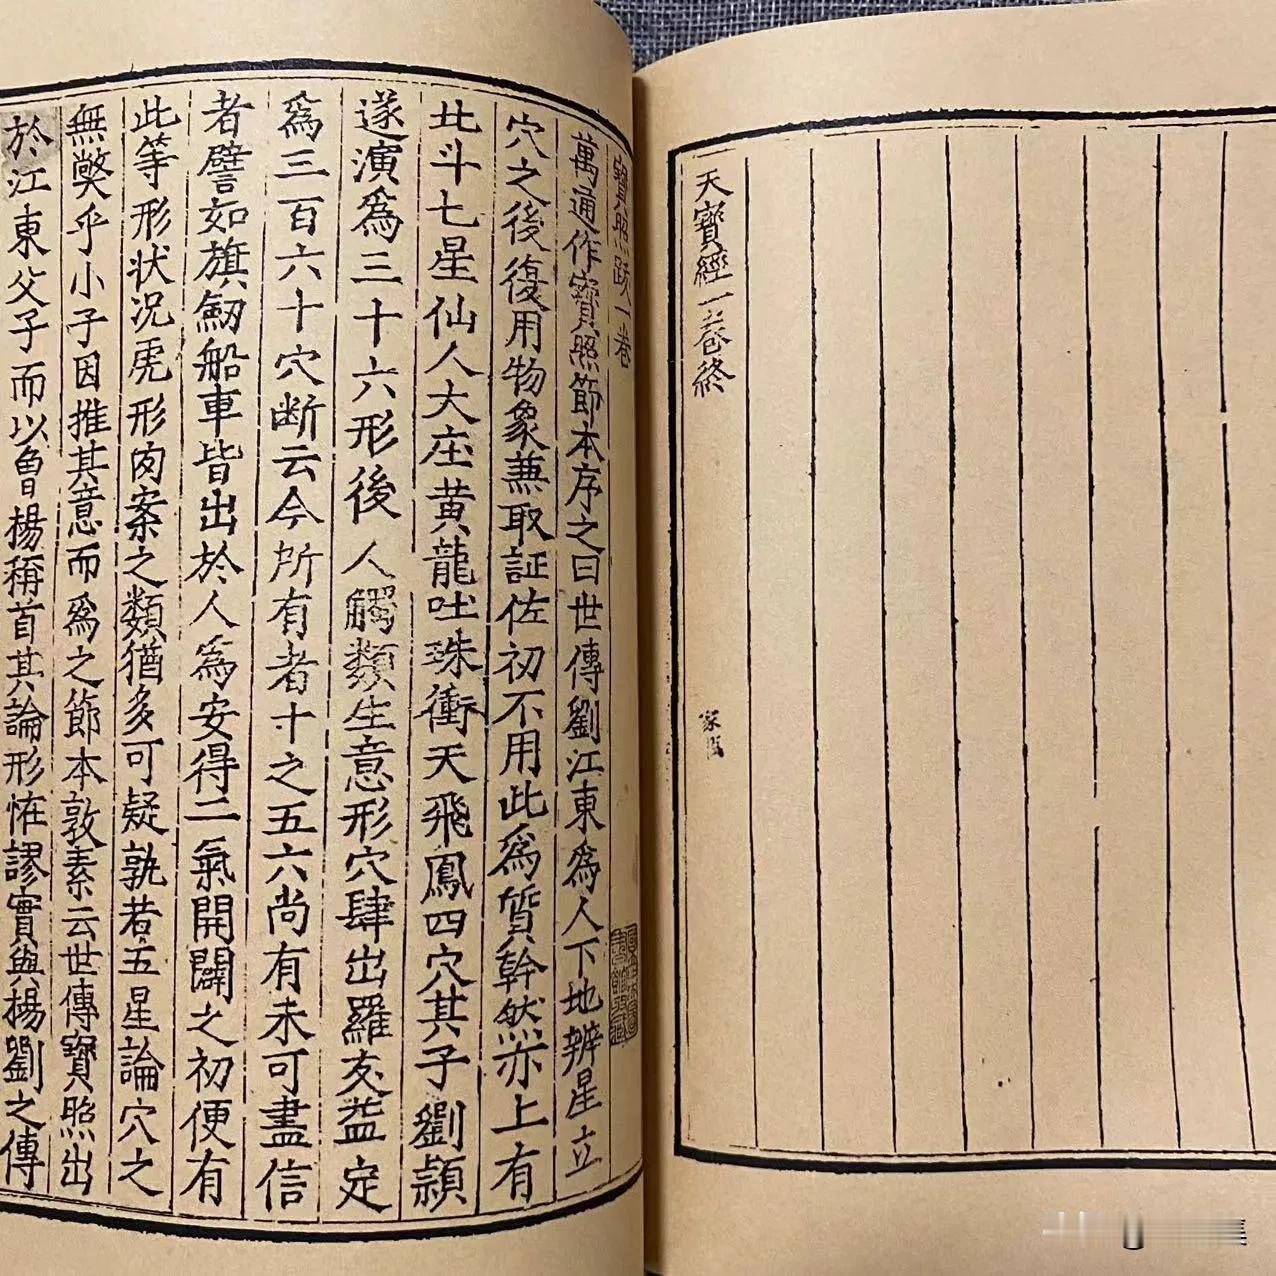 天寶經一卷終
寶照䟦一卷
萬通作寶照節本序之曰世傳劉江東為人下地辨星立
穴之後復用物象兼取証佐初不用此爲質幹然亦上有
北斗七星仙人大座黄龍吐珠衝天飛鳳四穴其子劉頴
遂演爲三十六形後人觸類生意形穴肆出羅友益定
爲三百六十穴断云今所有者十之五六尚有未可盡信
者譬如旗劒船車皆出於人爲安得二氣開闢之初便有
此等形状况虎形肉案之類猶多可疑孰若五星論穴之
無獘乎小子因推其意而爲之節本敦素云世傳寳照出
於江東父子而以曾楊稱首其論形怪謬實與楊劉之傳